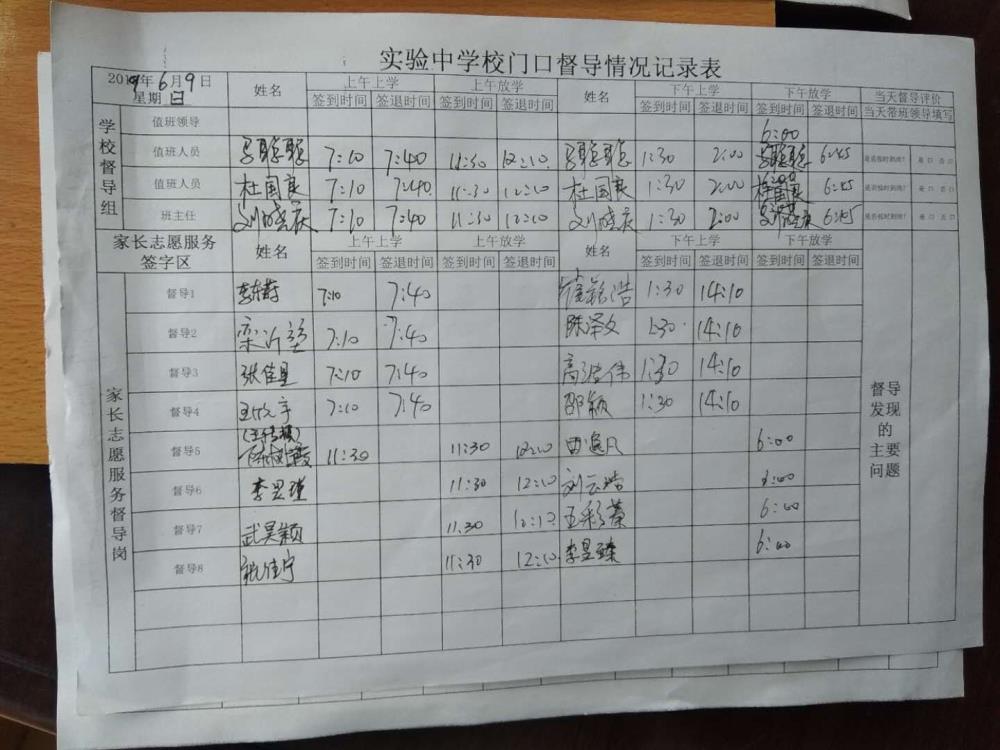 实验中学校门口督导情况记录表
2019年6月9日 姓名 上午上学 上午放学 姓名 下午上学 下午放学 当天督导评价
星期 日 签到时间 签退时间 签到时间 签退时间 签到时间 签退时间 签到时间 签退时间 当天带班领导填写
学校督导组
值班领导 6:00
值班人员 7:10 7:40 11:30 12:10 1:30 2:00 6:45 是否按时到岗? 是 口 否 口
值班人员 杜国良 7:10 7:40 11:30 12:10 杜国良 1:30 2:00 6:00 杜国良 6:45 是否按时到岗? 是 口 否 口
班主任 刘晓庆 7:10 7:40 11:30 12:10 刘晓庆 1:30 2:00 刘晓庆 6:45 是否按时到岗? 是 口 否 口
家长志愿服务 姓名 上午上学 上午放学 下午上学 下午放学
签字区 签到时间 签退时间 签到时间 签退时间 签到时间 签退时间 签到时间 签退时间
家长志愿服务督导岗
督导1 7:10 7:40 1:30 14:10
督导2 7:10 7:40 陈泽文 1:30 14:10
督导3 张佳星 7:10 7:40 1:30 14:10
督导4 7:10 7:40 邵颖 1:30 14:10
督导5 11:30 11:30 12:10 6:00
督导6 11:30 12:10 刘云浩 6:00
督导7 武昊颖 11:30 12:10 王彩蓉 6:00
督导8 祝佳宁 11:30 12:10 李昱臻 6:00
督导
发现
的
主要
问题